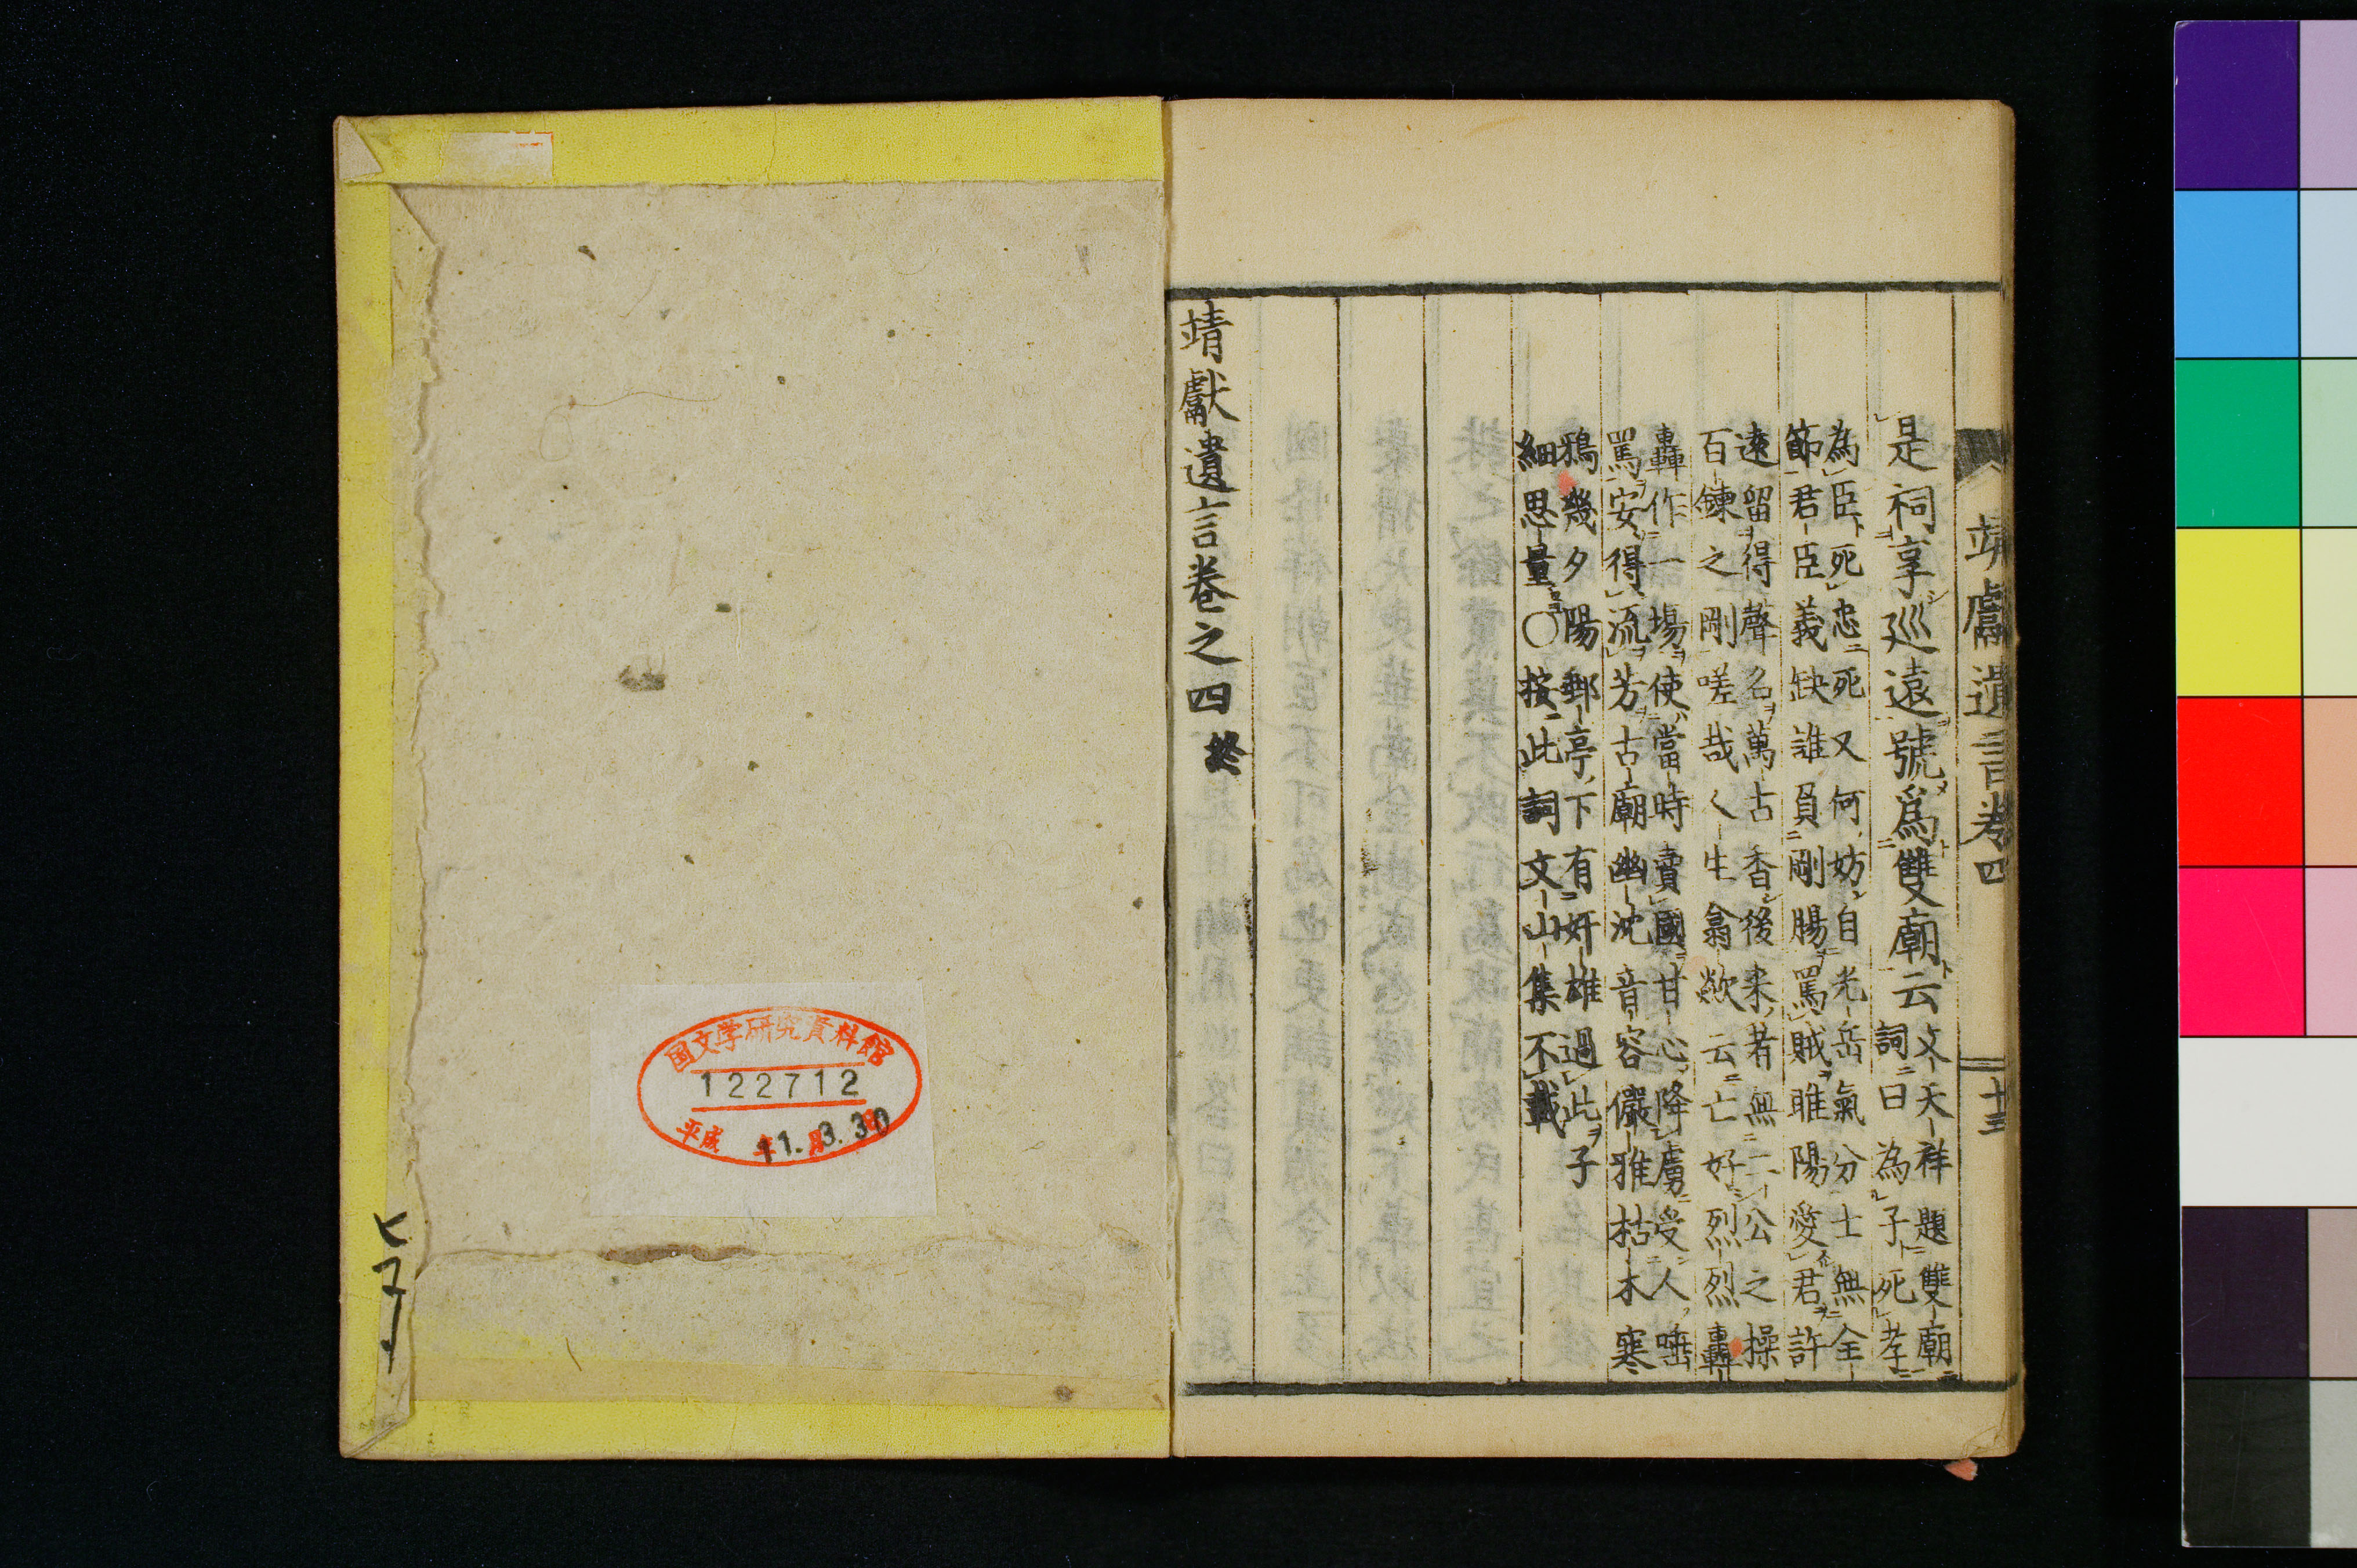 靖獻遺言卷四
十三
是祠享巡遠號爲雙廟云
文天祥題雙廟
詞曰為子死孝
為臣死忠死又何妨自光岳氣分士無全
節君臣義缺誰負剛腸罵賊睢陽愛君許
遠留得聲名萬古香後来者無二公之操
百鍊之剛嗟哉人生翕歘云亡好烈烈轟
轟作一場使當時賣國甘心降虜受人唾
罵安得流芳古廟幽沈音容儼雅枯木寒
鴉幾夕陽郵亭下有奸雄過此子
細思量○按此詞文山集不載
靖獻遺言卷之四終
国文学研究資料館
122712
平成 11.3.30